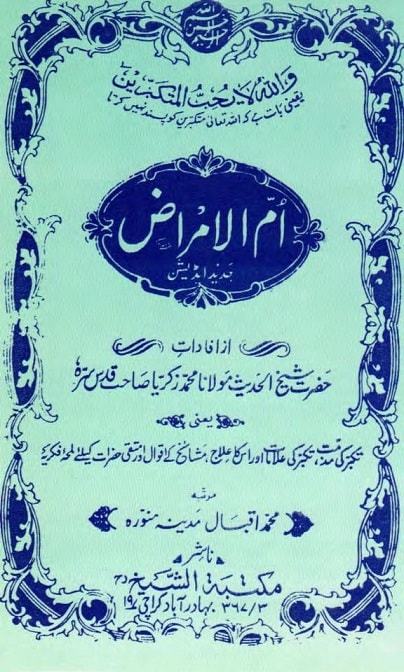 واللہ لا یحب المتکبرین
یقینی بات ہے کہ اللہ تعالیٰ متکبرین کو پسند نہیں کرتا
اُمّ الامراض
جدید ایڈیشن
از افادات
حضرت شیخ الحدیث مولانا محمد زکریا صاحب قدس سرہٗ
یعنی
تکبر کی مذمت، تکبر کی علامات اور اس کا علاج، مشائخ کے اقوال اور متقی حضرات کیلئے لمحۂ فکریہ
مرتبہ
محمد اقبال مدینہ منورہ
ناشر
مکتبۃ الشیخ
۳/۳۶۷ بہادر آباد کراچی